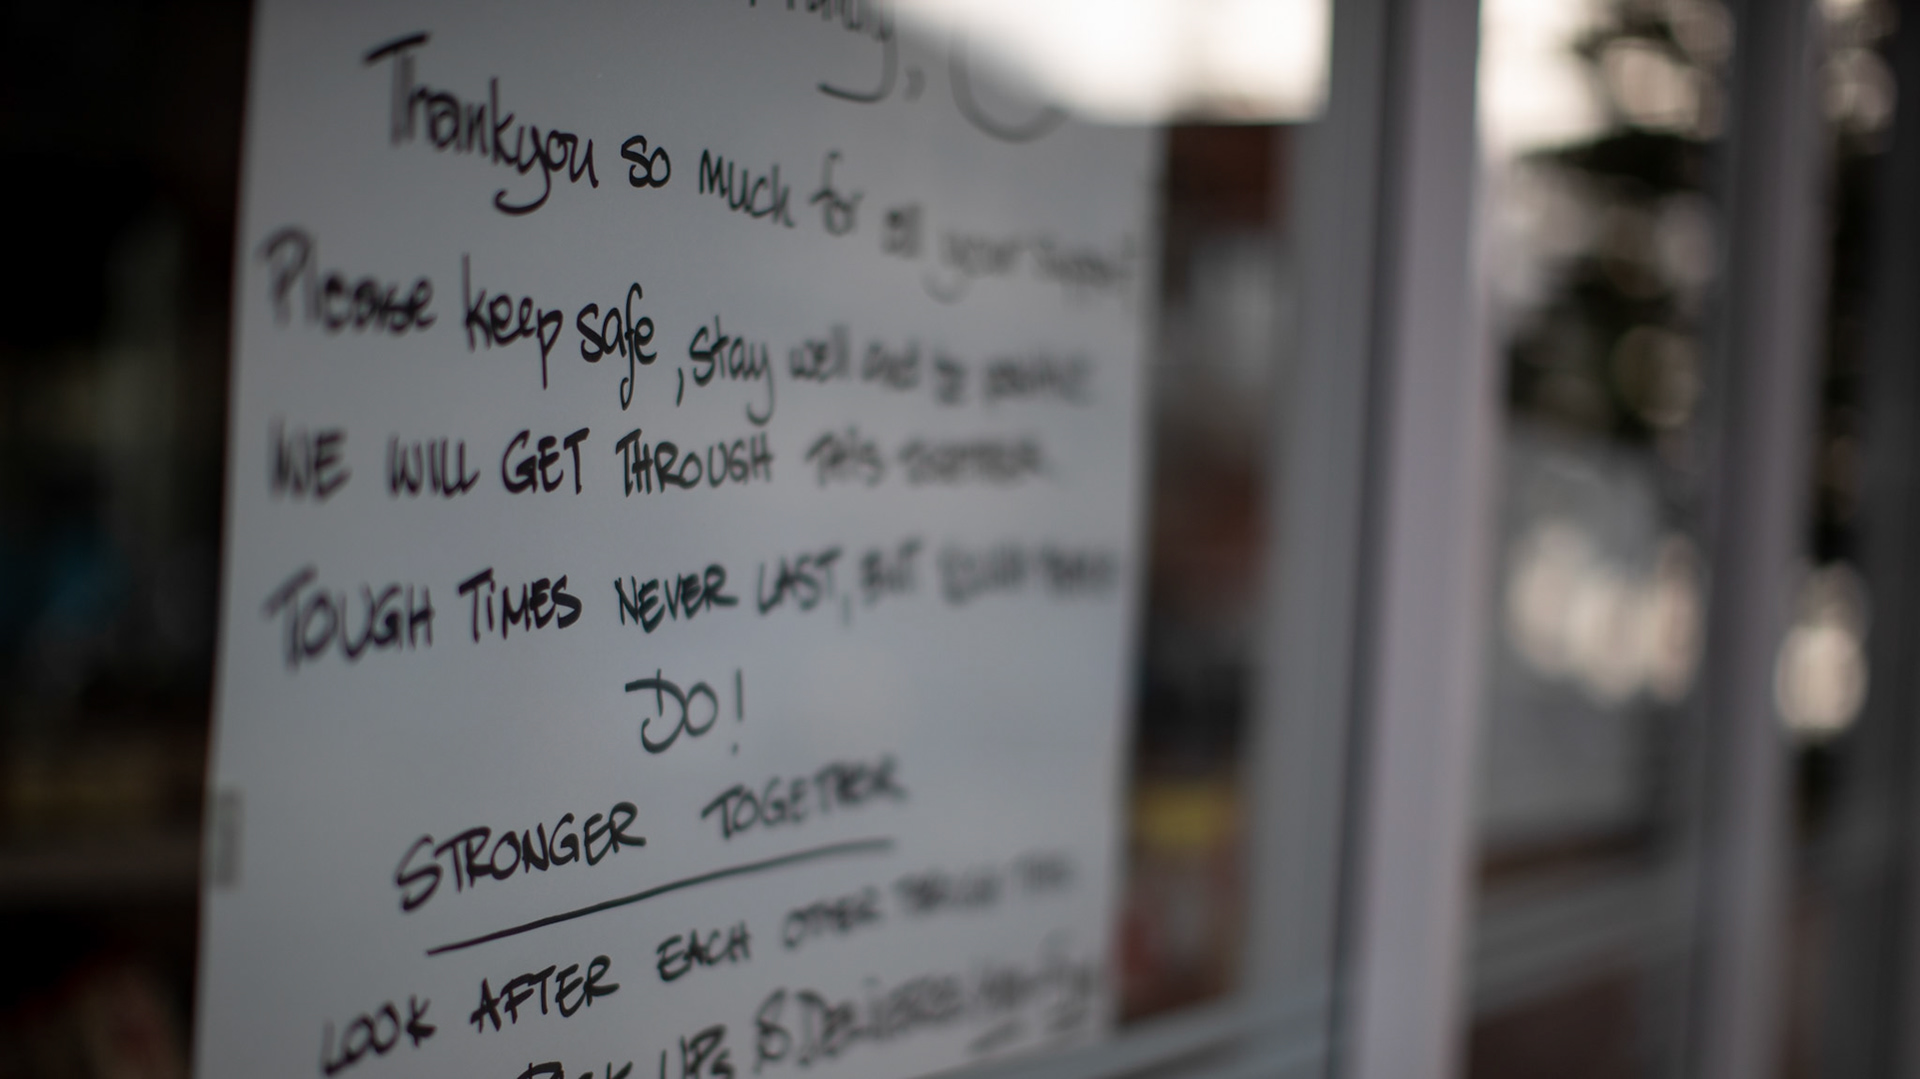 Thankyou so much for all your support
Please keep safe, stay well and be positive
WE WILL GET THROUGH THIS TOGETHER.
TOUGH TIMES NEVER LAST, BUT TOUGH TEAMS
DO!
STRONGER TOGETHER
LOOK AFTER EACH OTHER THROUGH THIS
PICK UPS & DELIVERIES